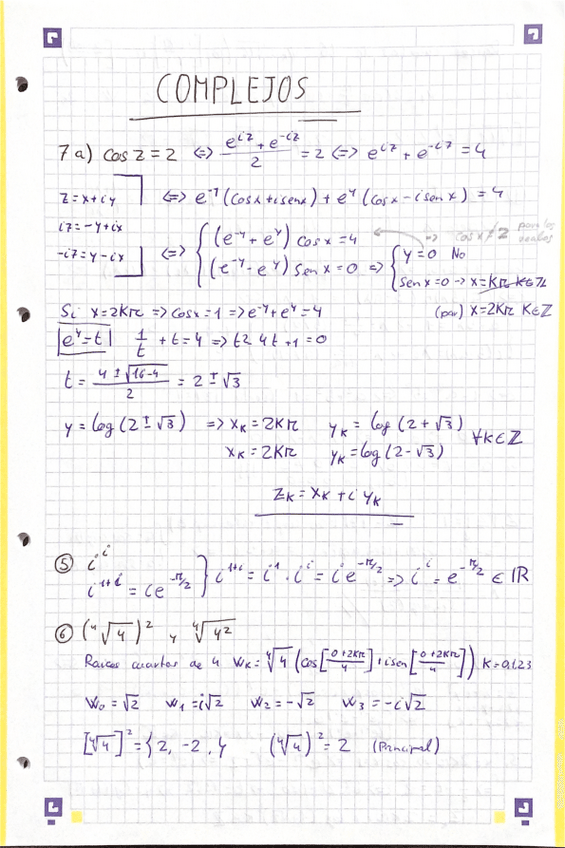 COMPLEJOS
7 a) cos z = 2 <=> (e^{iz} + e^{-iz})/2 = 2 <=> e^{iz} + e^{-iz} = 4
z = x + iy <=> e^{-y} (cos x + i sen x) + e^{y} (cos x - i sen x) = 4
iz = -y + ix
-iz = y - ix <=> { (e^{-y} + e^{y}) cos x = 4 => cos x ≠ 2 para los
(e^{-y} - e^{y}) sen x = 0 => { y = 0 No
sen x = 0 -> x = Kπ K∈ℤ
Si x = 2Kπ => cos x = 1 => e^{-y} + e^{y} = 4 (par) x = 2Kπ K∈ℤ
|e^{y} = t| 1/t + t = 4 => t2 4t + 1 = 0
t = (4 ± √(16-4))/2 = 2 ± √3
y = log (2 ± √3) => x_K = 2Kπ y_K = log (2 + √3) ∀K∈ℤ
x_K = 2Kπ y_K = log (2 - √3)
z_K = x_K + i y_K
⑤ i^{i}
i^{1+i} = i e^{-π/2} } i^{1+i} = i^{1} · i^{i} = i e^{-π/2} => i^{i} = e^{-π/2} ∈ ℝ
⑥ (⁴√4)² y ⁴√4²
Raíces cuartas de 4 W_K = ⁴√4 (cos[(0+2Kπ)/4] + i sen[(0+2Kπ)/4]) K = 0,1,2,3
W₀ = √2 W₁ = i√2 W₂ = -√2 W₃ = -i√2
[⁴√4]² = {2, -2, } (⁴√4)² = 2 (Principal)